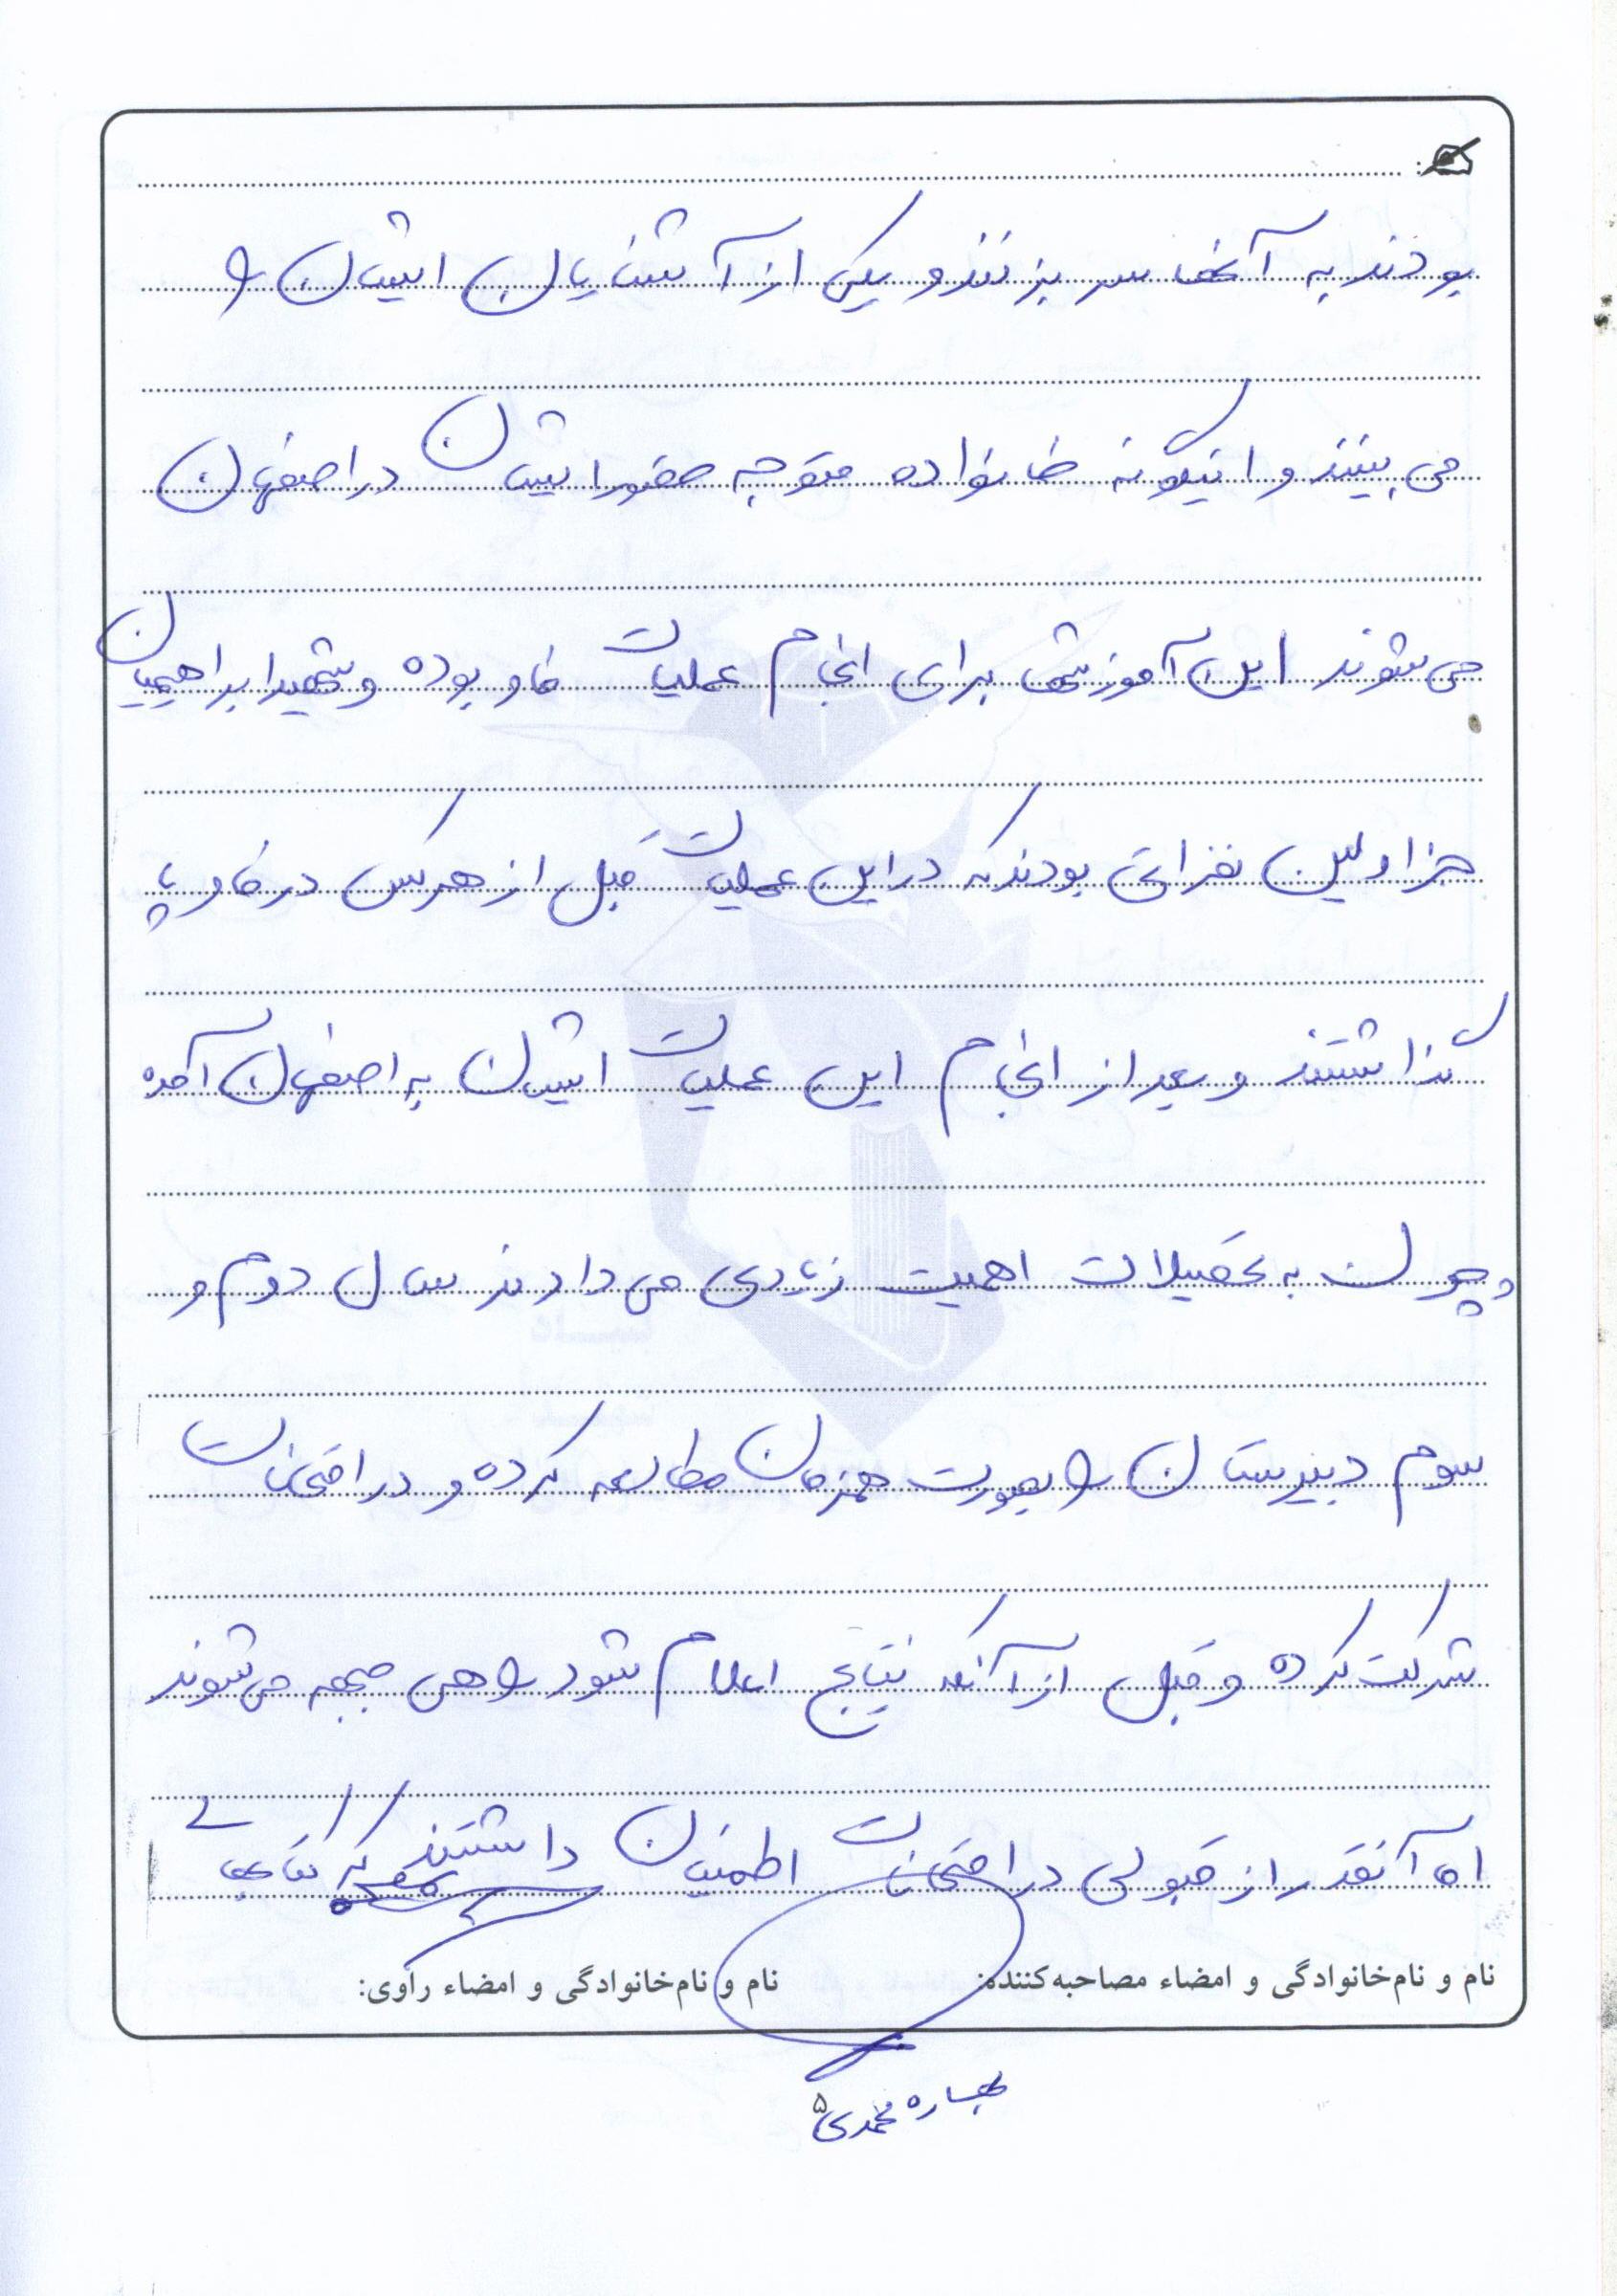 بودند به آنجا سر بزنند و یکی از آشنایان ایشان را
می بینند و اینگونه خانواده متوجه حضور ایشان در اصفهان
می شوند این آموزشها برای انجام عملیات فاو بوده و شهید ابراهیمیان
جز اولین نفراتی بودند که در این عملیات قبل از هر کس در فاو پا
گذاشتند و بعد از انجام این عملیات ایشان به اصفهان آمده
و چون به تحصیلات اهمیت زیادی می دادند سال دوم و
سوم دبیرستان را بصورت همزمان مطالعه کرده و در امتحانات
شرکت کرده و قبل از آنکه نتایج اعلام شود راهی جبهه می شوند
اما آنقدر از قبولی در امتحانات اطمینان داشتند که کتابهای
نام و نام‌خانوادگی و امضاء مصاحبه‌کننده:
نام و نام‌خانوادگی و امضاء راوی:
محمدی
۵